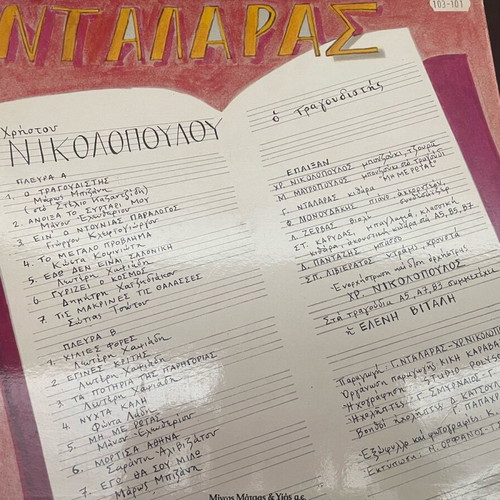 ΝΤΑΛΑΡΑΣ
103-101
Χρήστου
ΝΙΚΟΛΟΠΟΥΛΟΥ
ΠΛΕΥΡΑ Α
1. Ο ΤΡΑΓΟΥΔΙΣΤΗΣ
Μάρως Μπιζάνη
(στο Στέλιο Καζαντζίδη)
2. ΑΝΟΙΞΑ ΤΟ ΣΥΡΤΑΡΙ ΜΟΥ
Μάνου Ελευθερίου
3. ΕΙΝ' Ο ΝΤΟΥΝΙΑΣ ΠΑΡΑΛΟΓΟΣ
Γιώργου
4. ΤΟ ΜΕΓΑΛΟ ΠΡΟΒΛΗΜΑ
Κώστα
5. ΕΔΩ ΔΕΝ ΕΙΝΑΙ ΣΑΛΟΝΙΚΗ
Λευτέρη Χαψιάδη
6. ΓΥΡΙΖΕΙ Ο ΚΟΣΜΟΣ
Δημήτρη
7. ΤΙΣ ΜΑΚΡΙΝΕΣ ΤΙΣ ΘΑΛΑΣΣΕΣ
Σώτιας Τσώτου
ΠΛΕΥΡΑ Β
1. ΧΙΛΙΕΣ ΦΟΡΕΣ
Λευτέρη Χαψιάδη
2. ΕΓΙΝΕΣ ΚΡΙΤΗΣ
Λευτέρη Χαψιάδη
3. ΤΑ ΠΟΤΗΡΙΑ ΤΗΣ ΠΑΡΗΓΟΡΙΑΣ
Λευτέρη Χαψιάδη
4. ΝΥΧΤΑ ΚΑΛΗ
Φώντα Λάδη
5. ΜΗ ΜΕ ΡΩΤΑΣ
Μάνου Ελευθερίου
6. ΜΟΡΤΙΣΑ ΑΘΗΝΑ
Σαράντη Αλιβιζάτου
7. ΕΓΩ ΘΑ ΣΟΥ ΜΙΛΩ
Μάρως Μπιζάνη
ο τραγουδιστής
ΕΠΑΙΞΑΝ
ΧΡ. ΝΙΚΟΛΟΠΟΥΛΟΣ μπουζούκι, τζουρά
Μ. ΜΑΥΡΟΠΟΥΛΟΣ μπουζούκι στο τραγούδι
"ΜΗ ΜΕ ΡΩΤΑΣ"
Γ. ΝΤΑΛΑΡΑΣ κιθάρα
Φ. ΜΟΝΟΥΔΑΚΗΣ πιάνο, ακορντεόν,
συνθεσάιζερ
Λ. ΖΕΡΒΑΣ βιολί
ΣΤ. ΚΑΡΥΔΑΣ, μπαγλαμά, κλασσική
κιθάρα, ακουστική κιθάρα στα Α5, Β5, Β7
Δ. ΠΑΝΤΑΖΗΣ μπάσο
ΣΠ. ΛΙΒΙΕΡΑΤΟΣ ντραμς, κρουστά
Ενορχήστρωση και διεύθυνση ορχήστρας
ΧΡ. ΝΙΚΟΛΟΠΟΥΛΟΣ
Στα τραγούδια Α5, Α7, Β3 συμμετέχει
η ΕΛΕΝΗ ΒΙΤΑΛΗ
Παραγωγή Γ. ΝΤΑΛΑΡΑΣ - ΧΡ. ΝΙΚΟΛΟΠ
Οργάνωση παραγωγής ΚΙΚΗ ΚΑΡΑΒΑ
Ηχογράφηση STUDIO
Ηχολήπτης Γ. ΣΜΥΡΝΑΙΟΣ
Βοηθοί ηχολήπτες Δ. ΚΑΤΣΟΥ
Εξώφυλλο και φωτογραφίες
Εκτύπωση Ν. ΟΡΦΑΝΟΣ
Μίνως Μάτσας & Υιός α.ε.